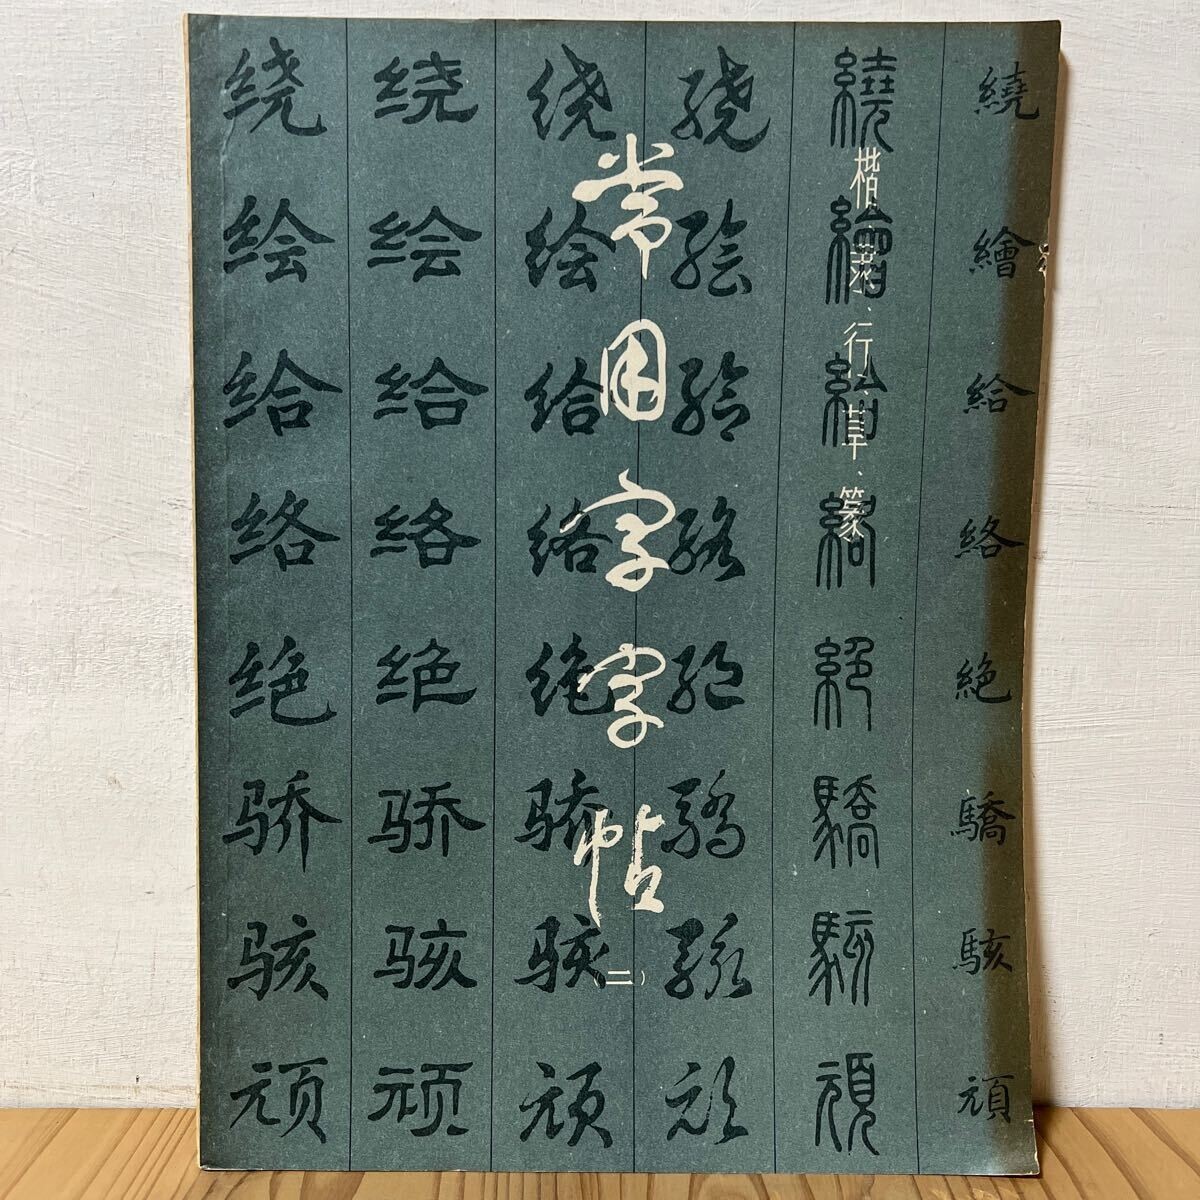 常用字字帖
(二)
楷、隶、行、草、篆
绕 绕 绕 绕 繞 繞
绘 绘 绘 绘 繪 繪
给 给 给 给 給 給
络 络 络 络 絡 絡
绝 绝 绝 绝 絕 絶
骄 骄 骄 驕 驕 驕
骇 骇 骇 駭 駭 駭
顽 顽 顽 顽 頑 頑